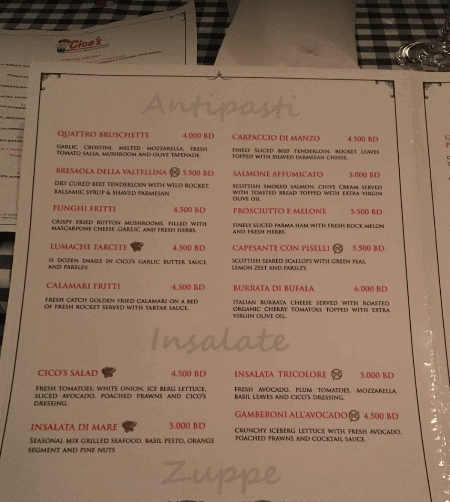 Cico's
Antipasti
QUATTRO BRUSCHETTE 4.000 BD
GARLIC CROSTINI, MELTED MOZZARELLA, FRESH
TOMATO SALSA, MUSHROOM AND OLIVE TAPENADE.
BRESAOLA DELLA VALTELLINA 5.500 BD
DRY CURED BEEF TENDERLOIN WITH WILD ROCKET,
BALSAMIC SYRUP & SHAVED PARMESAN
FUNGHI FRITTI 4.500 BD
CRISPY FRIED BUTTON MUSHROOMS, FILLED WITH
MASCARPONE CHEESE GARLIC AND FRESH HERBS.
LUMACHE FARCITE 4.500 BD
½ DOZEN SNAILS IN CICO'S GARLIC BUTTER SAUCE
AND PARSLEY.
CALAMARI FRITTI 4.500 BD
FRESH CATCH GOLDEN FRIED CALAMARI ON A BED
OF FRESH ROCKET SERVED WITH TARTAR SAUCE.
CARPACCIO DI MANZO 4.500 BD
FINELY SLICED BEEF TENDERLOIN, ROCKET LEAVES
TOPPED WITH SHAVED PARMESAN CHEESE.
SALMONE AFFUMICATO 5.000 BD
SCOTTISH SMOKED SALMON, CHIVE CREAM SERVED
WITH TOASTED BREAD TOPPED WITH EXTRA VIRGIN
OLIVE OIL.
PROSCIUTTO E MELONE 5.500 BD
FINELY SLICED PARMA HAM WITH FRESH ROCK MELON
AND FRESH HERBS.
CAPESANTE CON PISELLI 5.500 BD
SCOTTISH SEARED SCALLOPS WITH GREEN PEAS,
LEMON ZEST AND PARSLEY.
BURRATA DI BUFALA 6.000 BD
ITALIAN BURRATA CHEESE SERVED WITH ROASTED
ORGANIC CHERRY TOMATOES TOPPED WITH EXTRA
VIRGIN OLIVE OIL.
Insalate
CICO'S SALAD 4.500 BD
FRESH TOMATOES, WHITE ONION, ICE BERG LETTUCE,
SLICED AVOCADO, POACHED PRAWNS AND CICO'S
DRESSING.
INSALATA DI MARE 5.000 BD
SEASONAL MIX GRILLED SEAFOOD, BASIL PESTO, ORANGE
SEGMENT AND PINE NUTS
INSALATA TRICOLORE 5.000 BD
FRESH AVOCADO, PLUM TOMATOES, MOZZARELLA,
BASIL LEAVES AND CICO'S DRESSING.
GAMBERONI ALL'AVOCADO 4.500 BD
CRUNCHY ICEBERG LETTUCE WITH FRESH AVOCADO,
POACHED PRAWNS AND COCKTAIL SAUCE.
Zuppe